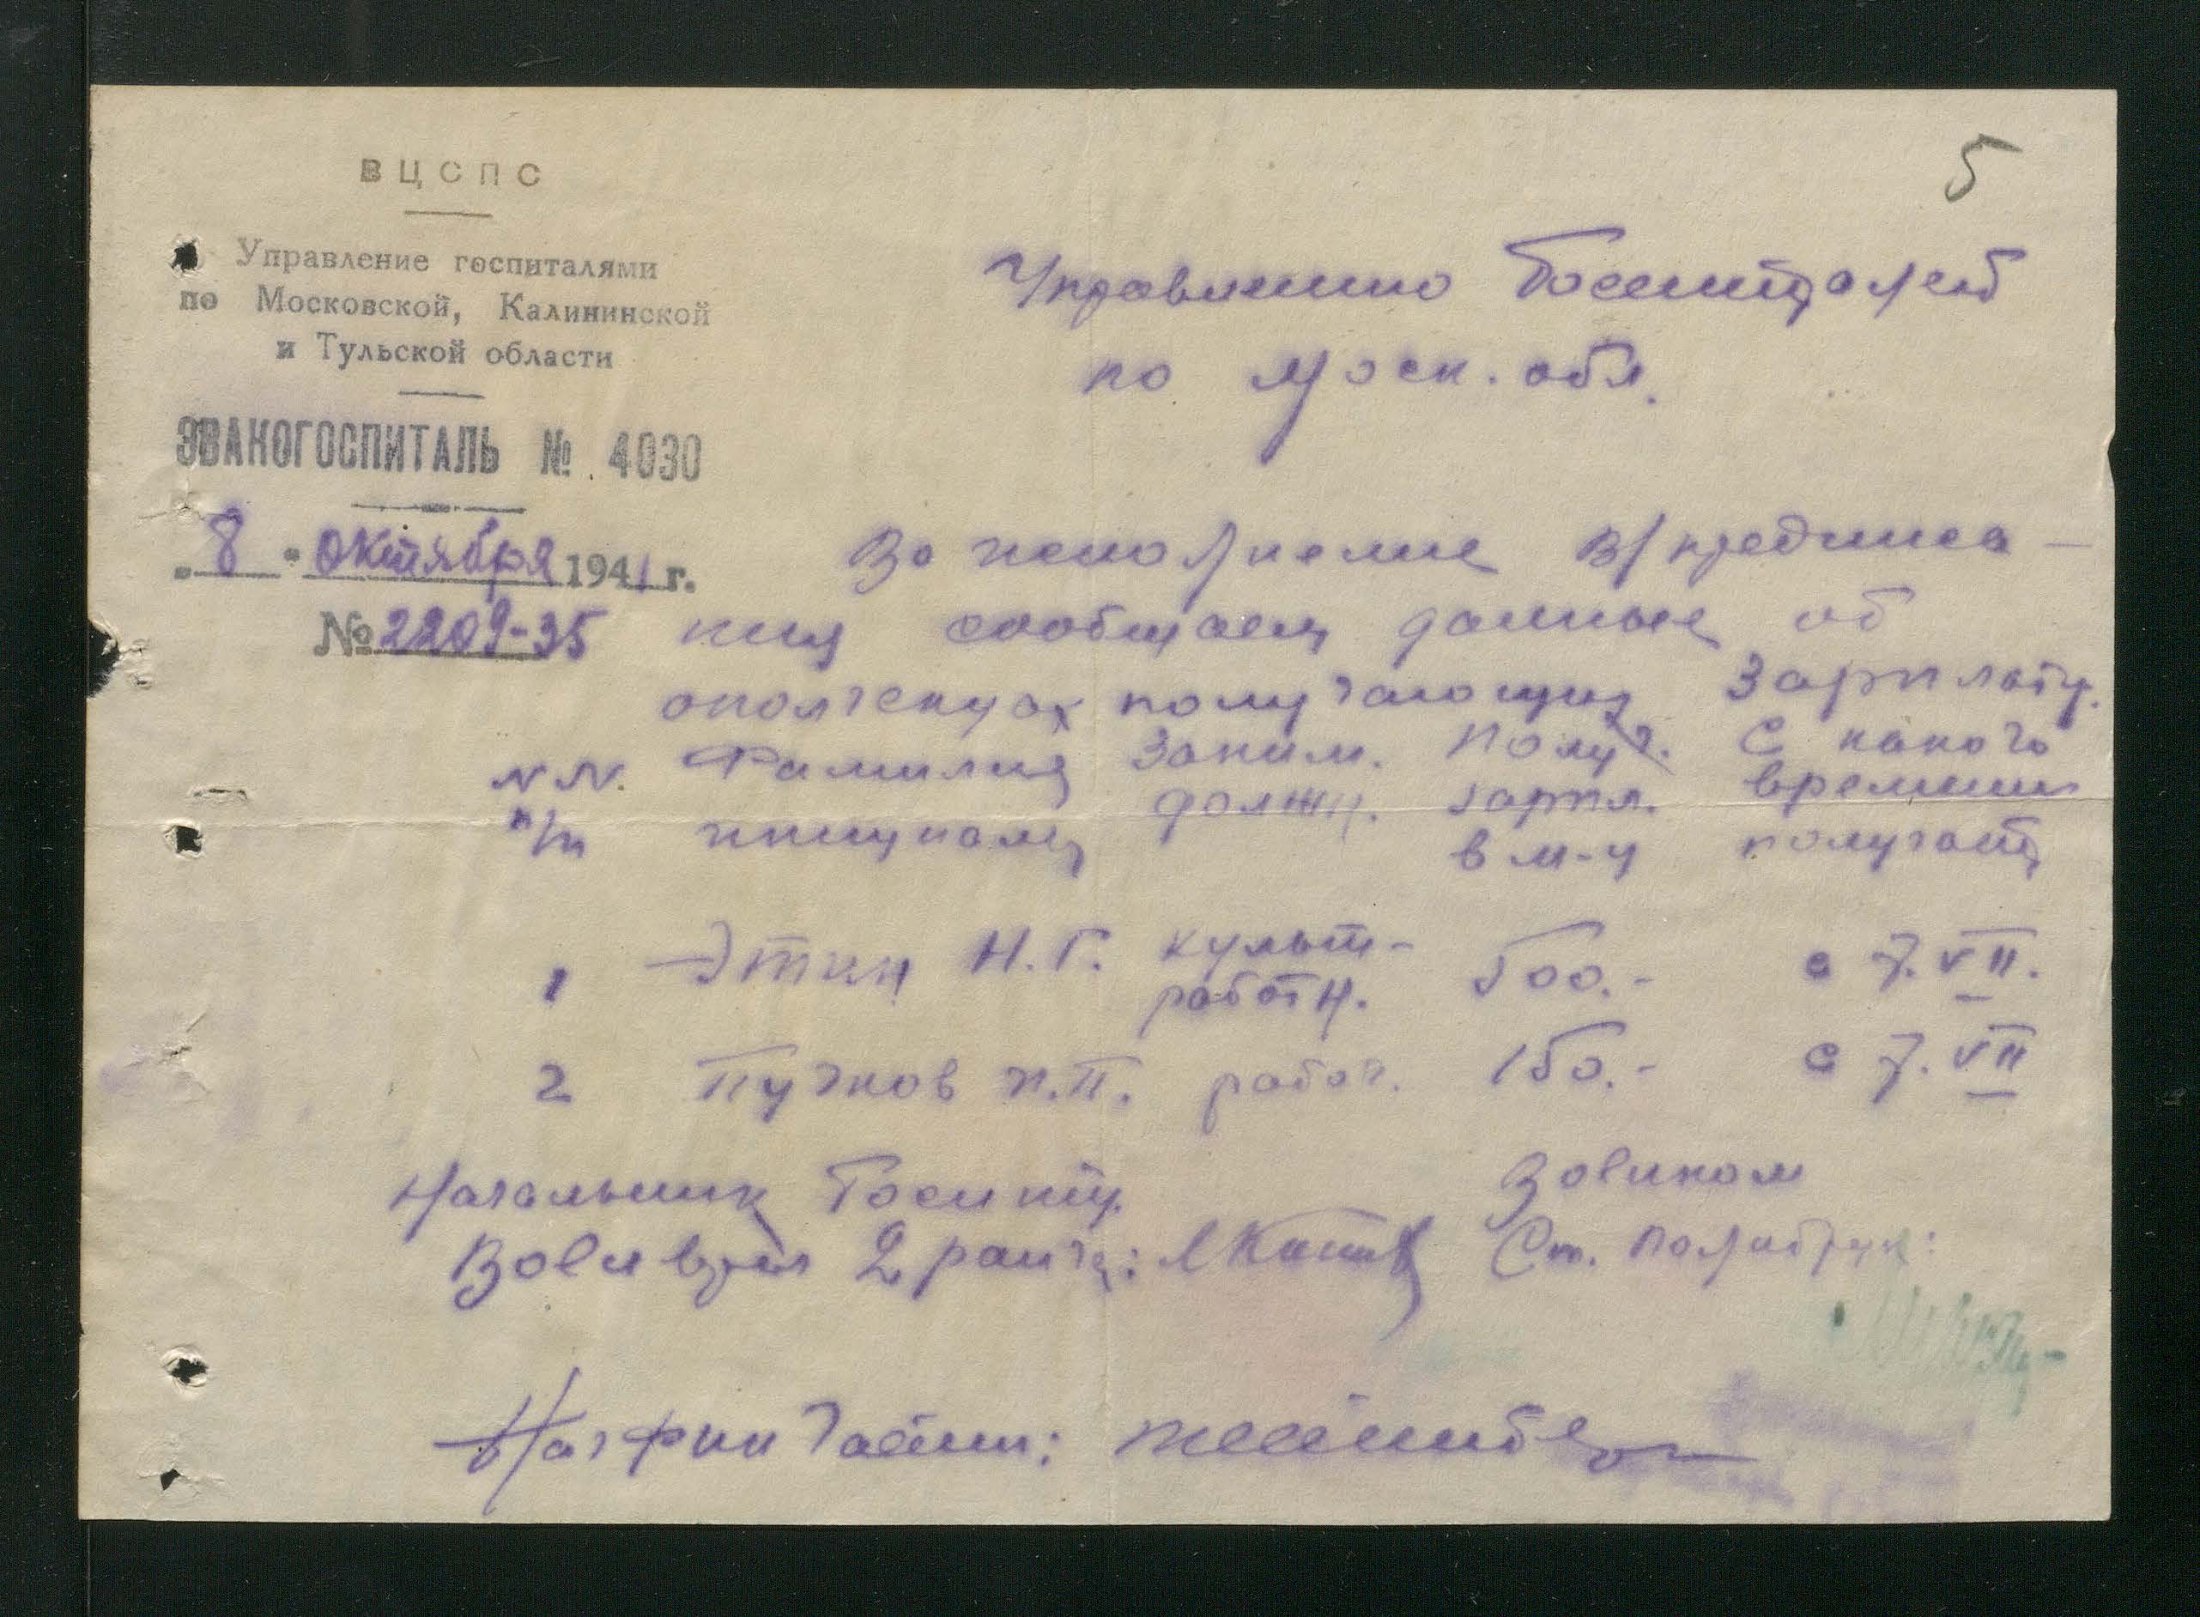 5
ВЦСПС
Управление госпиталями
по Московской, Калининской
и Тульской области
ЭВАКОГОСПИТАЛЬ № 4030
„8" октября 1941 г.
№ 2209-35
Управлению Госпиталей
по Моск. обл.
Во исполнение В/предписа-
ния сообщаем данные об
ополченцах получающих зарплату.
NN. Фамилия Заним. Получ. С какого
п/п инициалы должн. зарпл. времени
в м-ц получает
1 Эткин Н.Г. культ- 500.- с 7.VII.
работн.
2 Пучков И.П. рабоч. 150.- с 7.VII
Начальник Госпит. Военком
Воен врач 2 ранга: Ст. Политрук:
Нач фин части: